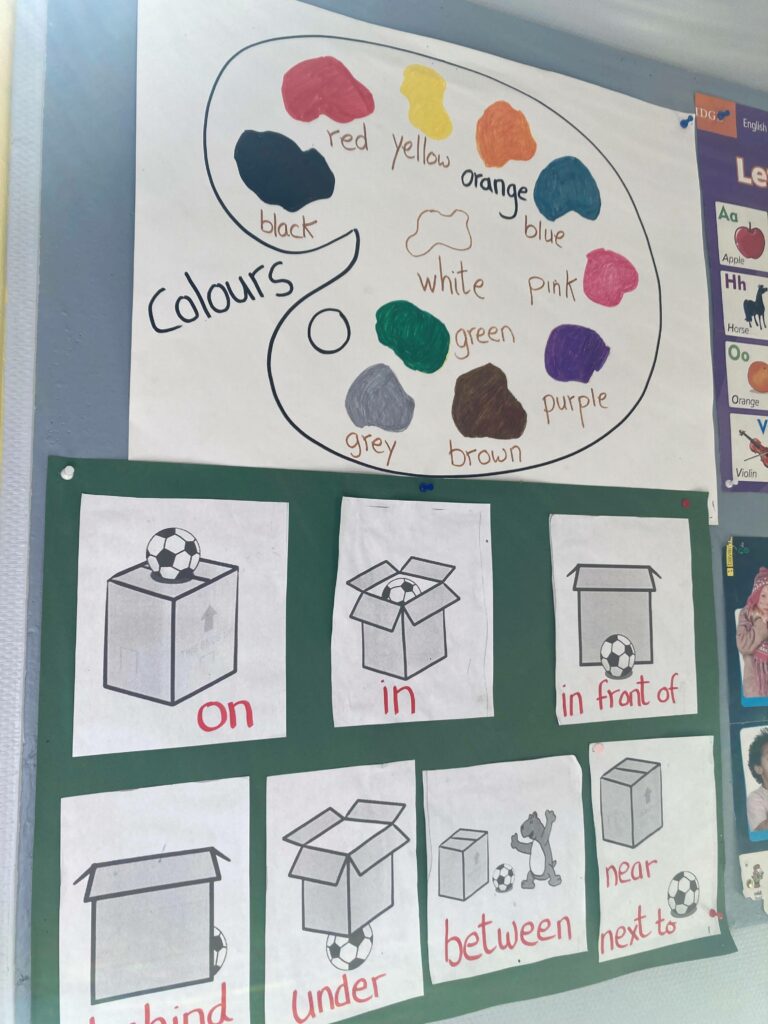 red
yellow
orange
blue
black
white
pink
Colours
green
purple
grey
brown
IDG
English
Aa
Apple
Hh
Horse
Oo
Orange
Violin
on
in
in front of
behind
under
between
near
next to